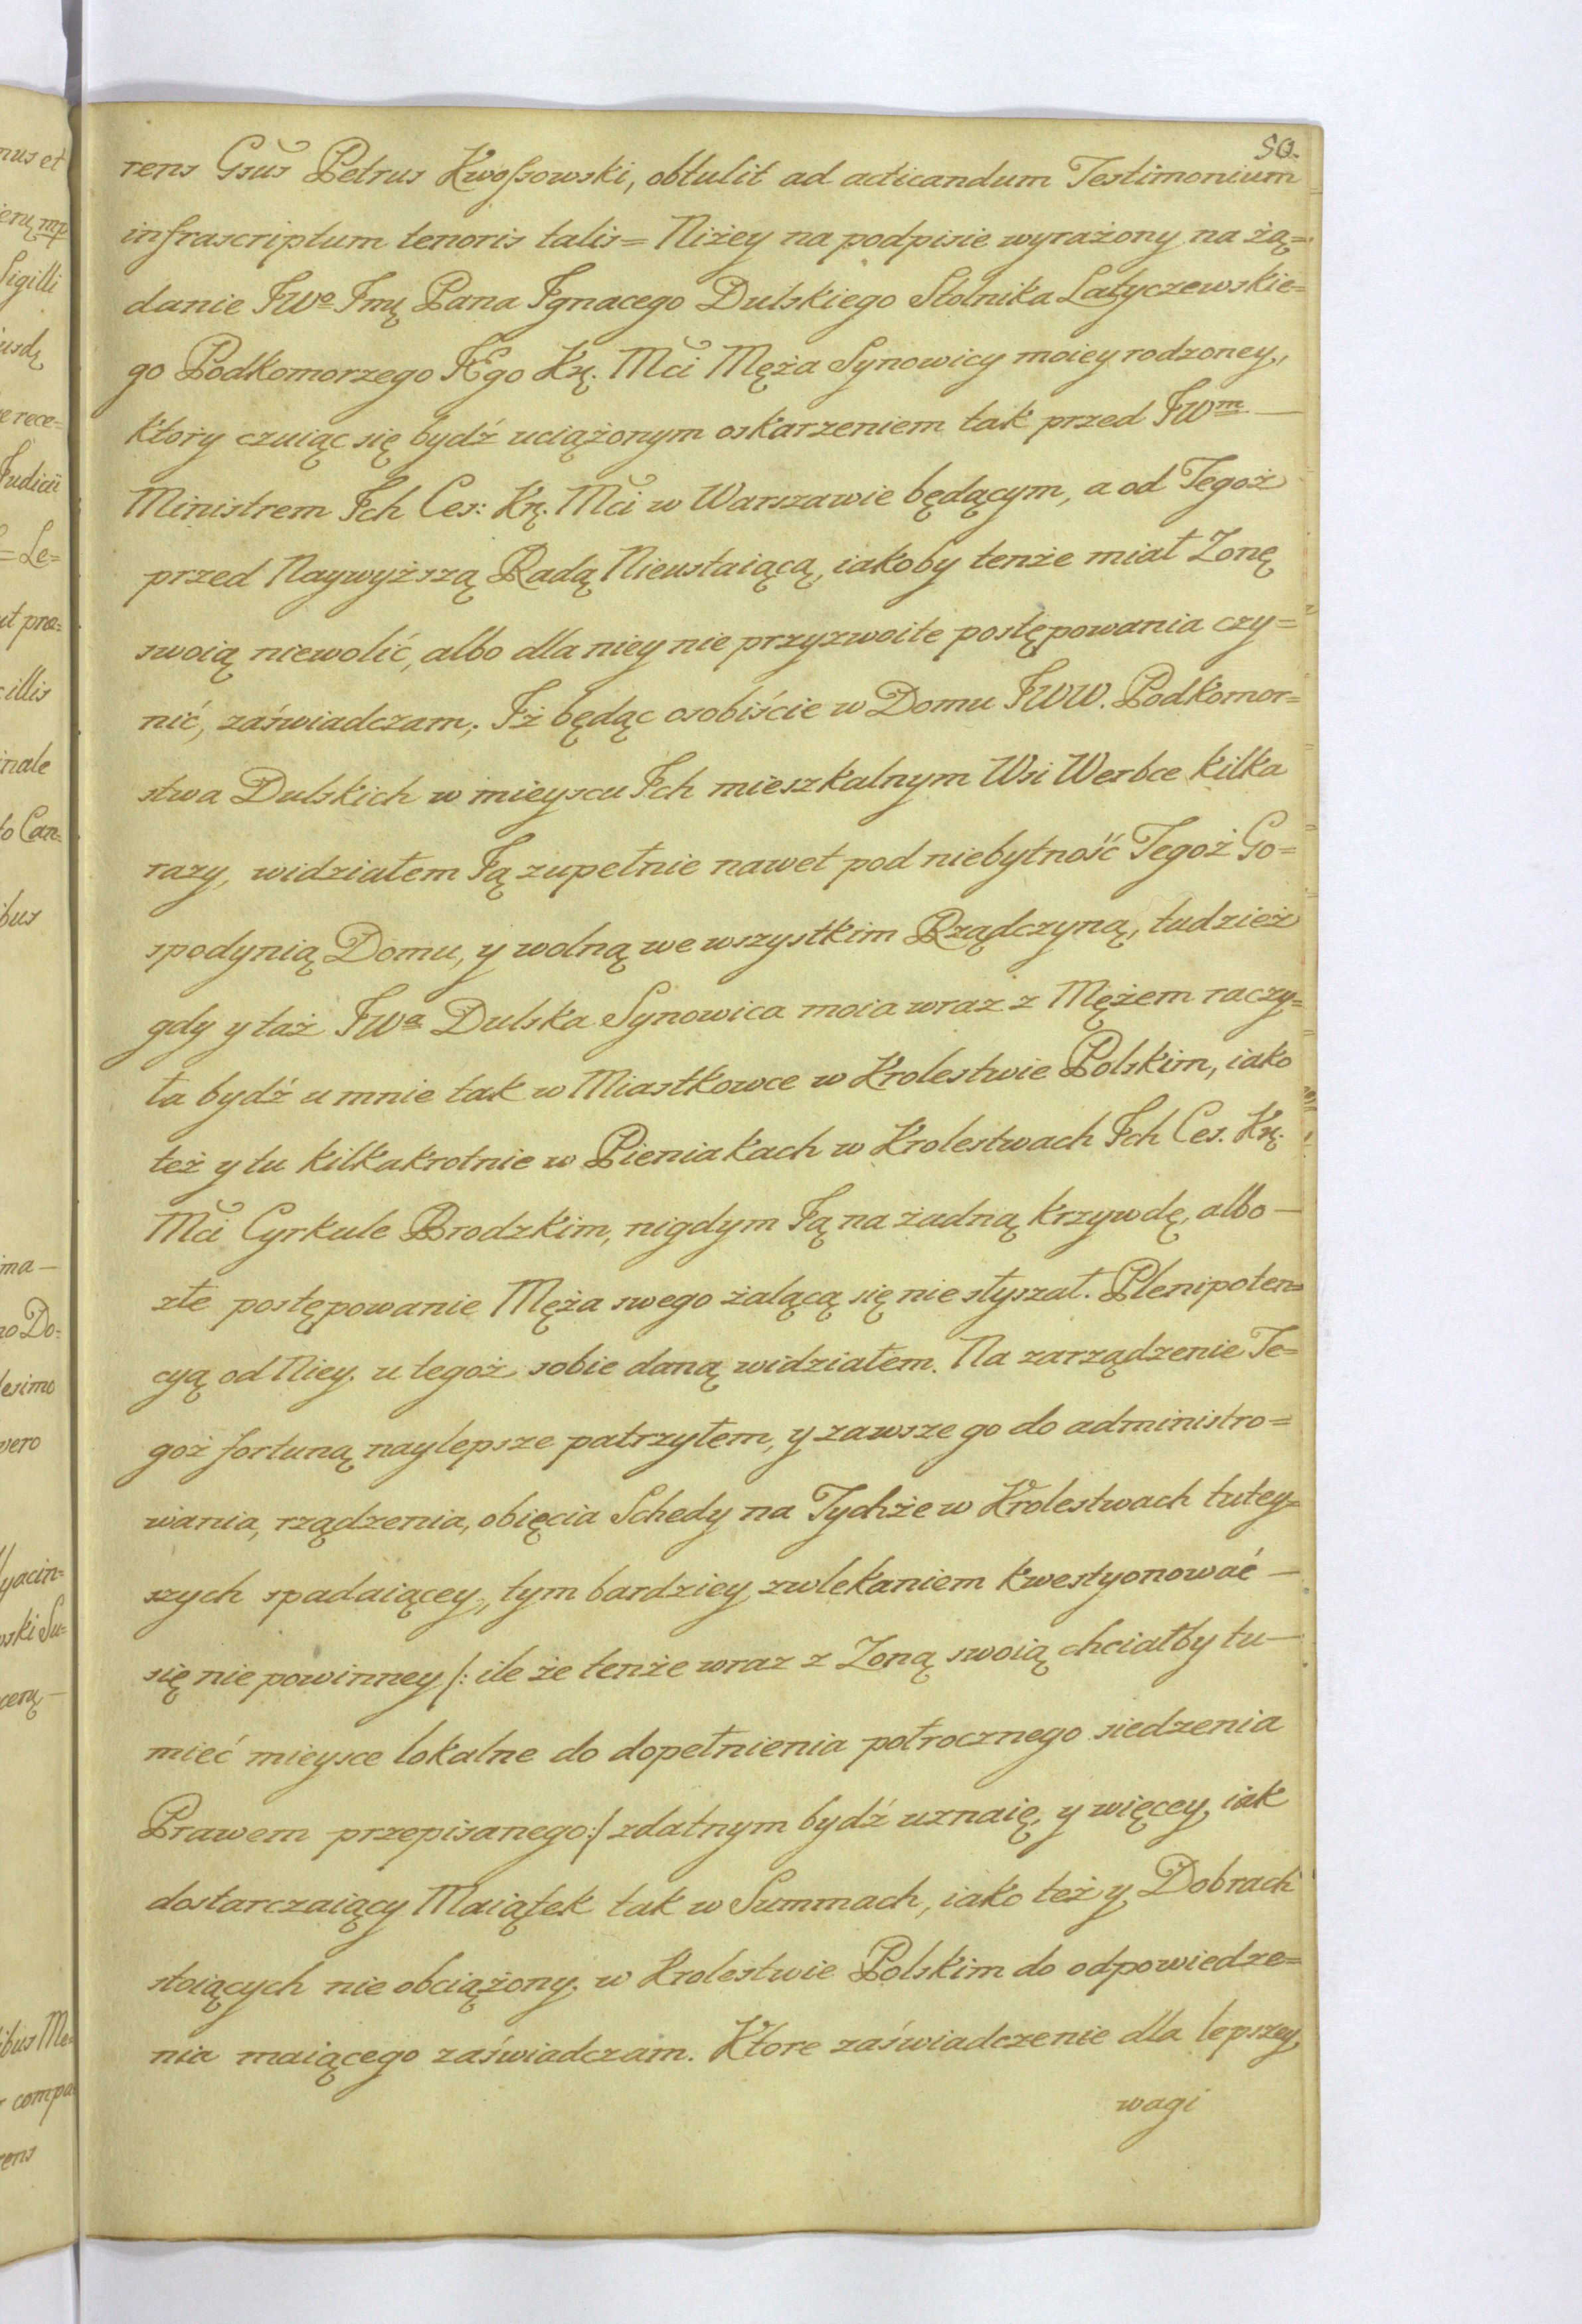 50.
rens Gsus Petrus Kwossowski, obtulit ad acticandum Testimonium
infrascriptum tenoris talis= Niżey na podpisie wyrażony na żą=
danie JWo Jmę Pana Jgnacego Dulskiego Stolnika Latyczewskie=
go Podkomorzego JEgo Kr. Mci Męża Synowicy moiey rodzoney,
ktory czuiąc się bydź uciążonym oskarzeniem tak przed JWm —
Ministrem Jch Ces: Kr. Mci w Warszawie będącym, a od Tegoż
przed Naywyższą Radą Nieustaiącą, iakoby tenże miał Zonę
swoią niewolić, albo dla niey nie przyzwoite postępowania czy=
nić, zaświadczam; Jż będąc osobiście w Domu JWW. Podkomor=
stwa Dulskich w mieyscu Jch mieszkalnym Wsi Werbce kilka
razy, widziałem Ją zupełnie nawet pod niebytność Tegoż Go=
spodynią Domu, y wolną we wszystkim Rządczyną, tudzież
gdy y taż JWa Dulska Synowica moia wraz z Mężem raczy=
ła bydź u mnie tak w Miastkowce w Krolestwie Polskim, iako
też y tu kilkakrotnie w Pieniakach w Krolestwach Jch Ces. Kr.
Mci Cyrkule Brodzkim, nigdym Ją na żadną krzywdę, albo —
złe postępowanie Męża swego żalącą się nie słyszał. Plenipoten=
cyą od Niey. u tegoż sobie daną widziałem. Na zarządzenie Te=
goż fortuną naylepsze patrzyłem, y zawsze go do administro=
wania, rządzenia, obięcia Schedy na Tychże w Krolestwach tutey=
szych spadaiącey, tym bardziey zwlekaniem kwestyonować —
się nie powinney /: ile że tenże wraz z Zoną swoią chciałby tu —
mieć mieysce lokalne do dopełnienia połrocznego siedzenia
Prawem przepisanego :/ zdatnym bydź uznaię, y więcey, iak
dostarczaiący Maiątek tak w Summach, iako też y Dobrach
stoiących nie obciążony. w Krolestwie Polskim do odpowiedze=
nia maiącego zaświadczam. Ktore zaświadczenie dla lepszey
wagi